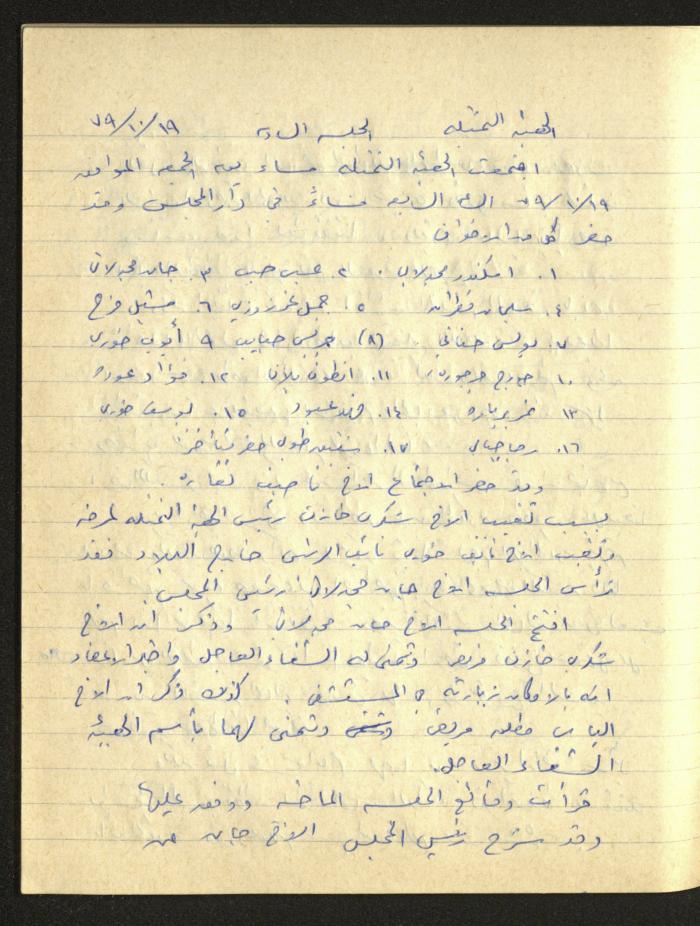 الهيئة التمثيلية الجلسة ٧٩/١٠/١٩
اجتمعت الهيئة التمثيلية مساء يوم الجمعة الموافق
٧٩/١٠/١٩ الساعة السابعة مساءً في دار المجلس وقد
حضر كل من الاخوان
١. اسكندر مجدلاني ٢. حبيب ٣. جان مجدلاني
٤. سليمان ٥. جميل ٦. ميشيل فرح
٧. بولس (٨) جريس حبايب ٩ أيوب خوري
١٠ جورج ١١. انطون ١٢. فؤاد
١٣ ١٤. فهد عبود ١٥. يوسف خوري
١٦. رجا ١٧. شفيق طوبي (حضر متأخراً)
وقد حضر الاجتماع الاخ ناصيف
بسبب تغيب الاخ شكري خازن رئيس الهيئة التمثيلية لمرضه
وتغيب الاخ خوري نائب الرئيس خارج البلاد فقد
ترأس الجلسة الاخ جان مجدلاني رئيس المجلس
افتتح الجلسة الاخ جان مجدلاني وذكر ان الاخ
شكري خازن مريض وتمنى له الشفاء العاجل واخبر الاعضاء
انه بالامكان زيارته في المستشفى. كذلك ذكر ان الاخ
الياس مريض وتمنى لهما بأسم الهيئة
الشفاء العاجل.
قرأت وقائع الجلسة الماضية ووفق عليها
وقد شرح رئيس المجلس الاخ جان عن